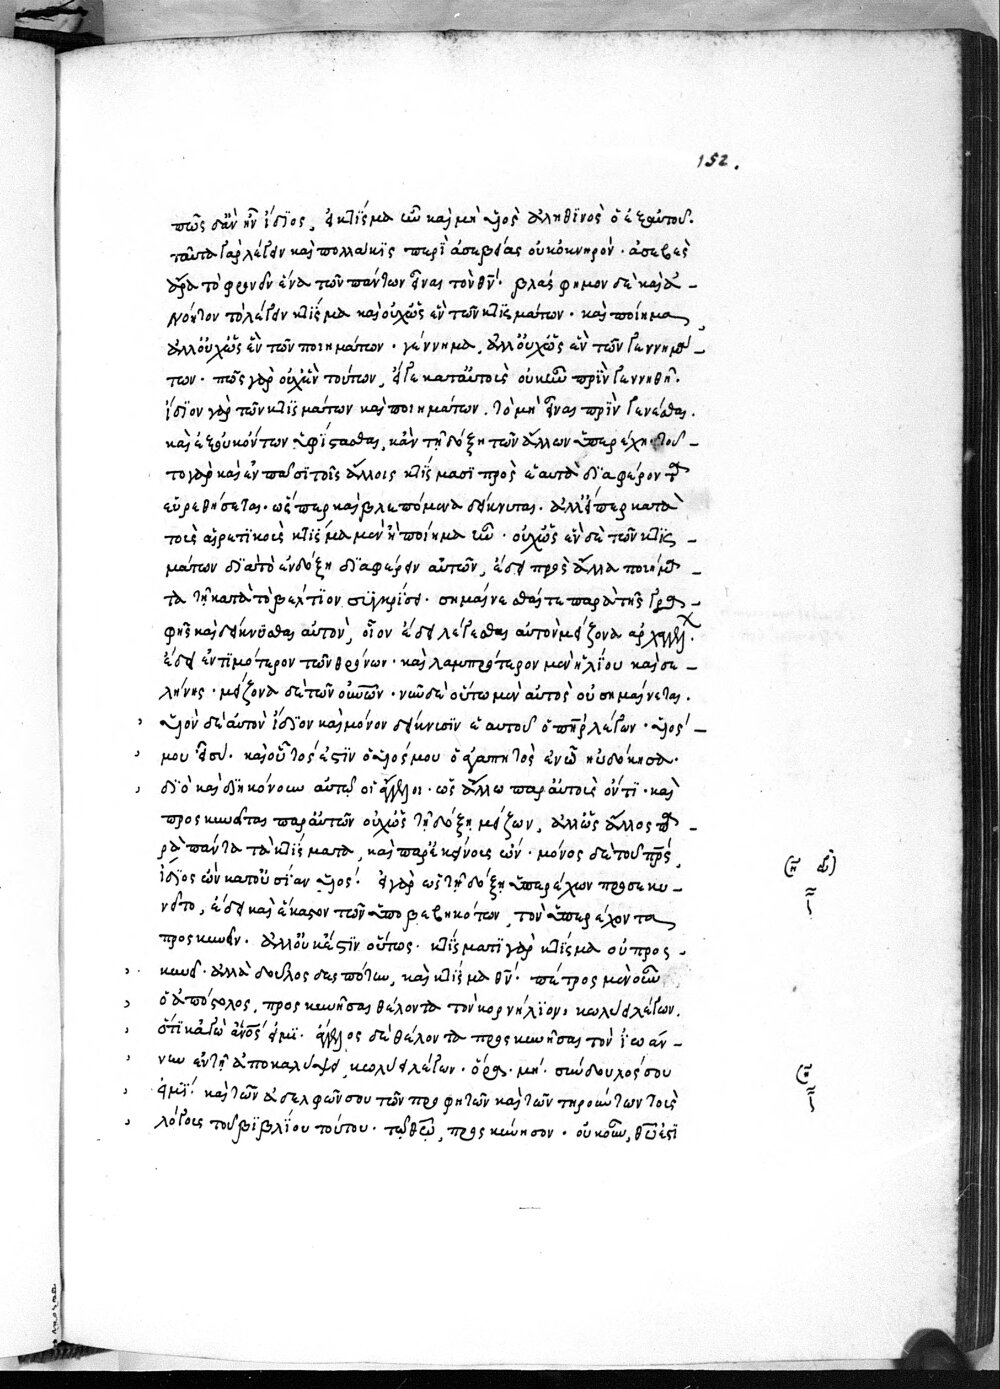 152.
πῶς δ' ἂν ἦν ἴδιος, ἢ κτίσμα ὢν καὶ μὴ υἱὸς ἀληθινὸς ὁ ἐξ αὐτοῦ.
ταῦτα γὰρ λέγειν καὶ πολλακις περὶ ἀσεβείας οὐκ ὀκνηρὸν. ἀσεβὲς
ἄρα τὸ φρονεῖν ἕνα τῶν πάντων εἶναι τὸν θν. βλάσφημον δὲ καὶ ἀ-
νόητον τὸ λέγειν κτίσμα καὶ οὐχ ὡς ἓν τῶν κτισμάτων. καὶ ποίημα,
ἀλλ' οὐχ ὡς ἓν τῶν ποιημάτων. γέννημα, ἀλλ' οὐχ ὡς ἓν τῶν γεννημά-
των. πῶς γὰρ οὐχ ἓν τούτων, εἴγε κατ' αὐτοὺς οὐκ ἦν πρὶν γεννηθῇ.
ἴδιον γὰρ τῶν κτισμάτων καὶ ποιημάτων. τὸ μὴ εἶναι πρὶν γενέσθαι.
καὶ ἐξ οὐκ ὄντων ὑφίστασθαι, κἂν τῇ δόξῃ τῶν ἄλλων ὑπερέχῃ. τοῦ-
το γὰρ καὶ ἐν πᾶσι τοῖς ἄλλοις κτίσμασι πρὸς ἑαυτὰ διαφέροντα
εὑρεθήσεται. ὥσπερ καὶ βλεπόμενα δείκνυται. ἀλλ' εἴπερ κατὰ
τοὺς αἱρετικοὺς κτίσμα μὲν ἢ ποίημα ἦν. οὐχ ὡς ἓν δὲ τῶν κτισ-
μάτων διὰ τὸ ἐνδόξῃ διαφέρειν αὐτῶν, ἔδει πρὸς ἄλλα ποιήμα-
τα τῇ κατὰ τὸ βέλτιον συγκρίσει. σημαίνεσθαί τε παρὰ τῆς γρα-
φῆς καὶ δείκνυσθαι αὐτὸν, οἷον ἔδει λέγεσθαι αὐτὸν μείζονα ἀρχαγγέλ.
ἔδει ἐντιμότερον τῶν θρόνων. καὶ λαμπρότερον μὲν ἡλίου καὶ σε-
λήνης. μείζονα δὲ τῶν οὐνῶν. νῦν δὲ οὕτω μὲν αὐτὸς οὐ σημαίνεται.
υἱὸν δὲ αὐτὸν ἴδιον καὶ μόνον δείκνυσιν ἑαυτοῦ ὁ πηρ λέγων. υἱός
μου εἶ σύ. καὶ οὗτός ἐστιν ὁ υἱός μου ὁ ἀγαπητὸς ἐν ᾧ ηὐδόκησα.
διὸ καὶ διηκόνουν αὐτῷ οἱ ἄγγελοι. ὡς ἄλλω παρ' αὐτοὺς ὄντι. καὶ
προσκυνεῖται παρ' αὐτῶν οὐχ ὡς τῇ δόξῃ μείζων, ἀλλ' ὡς ἄλλος πα-
ρὰ πάντα τὰ κτίσματα, καὶ παρ' ἐκείνους ὢν. μόνος δὲ τοῦ πρς,
ἴδιος ὢν κατ' οὐσίαν υἱός. εἰ γὰρ ὡς τῇ δόξῃ ὑπερέχων προσεκυ-
νεῖτο, ἔδει καὶ ἕκαστον τῶν ὑποβεβηκότων, τὸν ὑπερέχοντα
προσκυνεῖν. ἀλλ' οὐκ ἔστιν οὕτως. κτίσματι γὰρ κτίσμα οὐ προσ-
κυνεῖ. ἀλλὰ δοῦλος δεσπότην, καὶ κτίσμα θν. πέτρος μὲν οὖν
ὁ ἀπόστολος, προσκυνῆσαι θέλοντα τὸν κορνήλιον, κωλύει λέγων.
ὅτι κἀγὼ ἀνος εἰμι. ἄγγελος δὲ θέλοντα προσκυνῆσαι τὸν ἰωάν-
νην ἐν τῇ ἀποκαλύψει, κωλύει λέγων. ὅρα. μή. σύνδουλός σου
εἰμί. καὶ τῶν ἀδελφῶν σου τῶν προφητῶν καὶ τῶν τηρούντων τοὺς
λόγους τοῦ βιβλίου τούτου. τῷ θῶ, προσκύνησον. οὐκοῦν, θῦ ἐστι